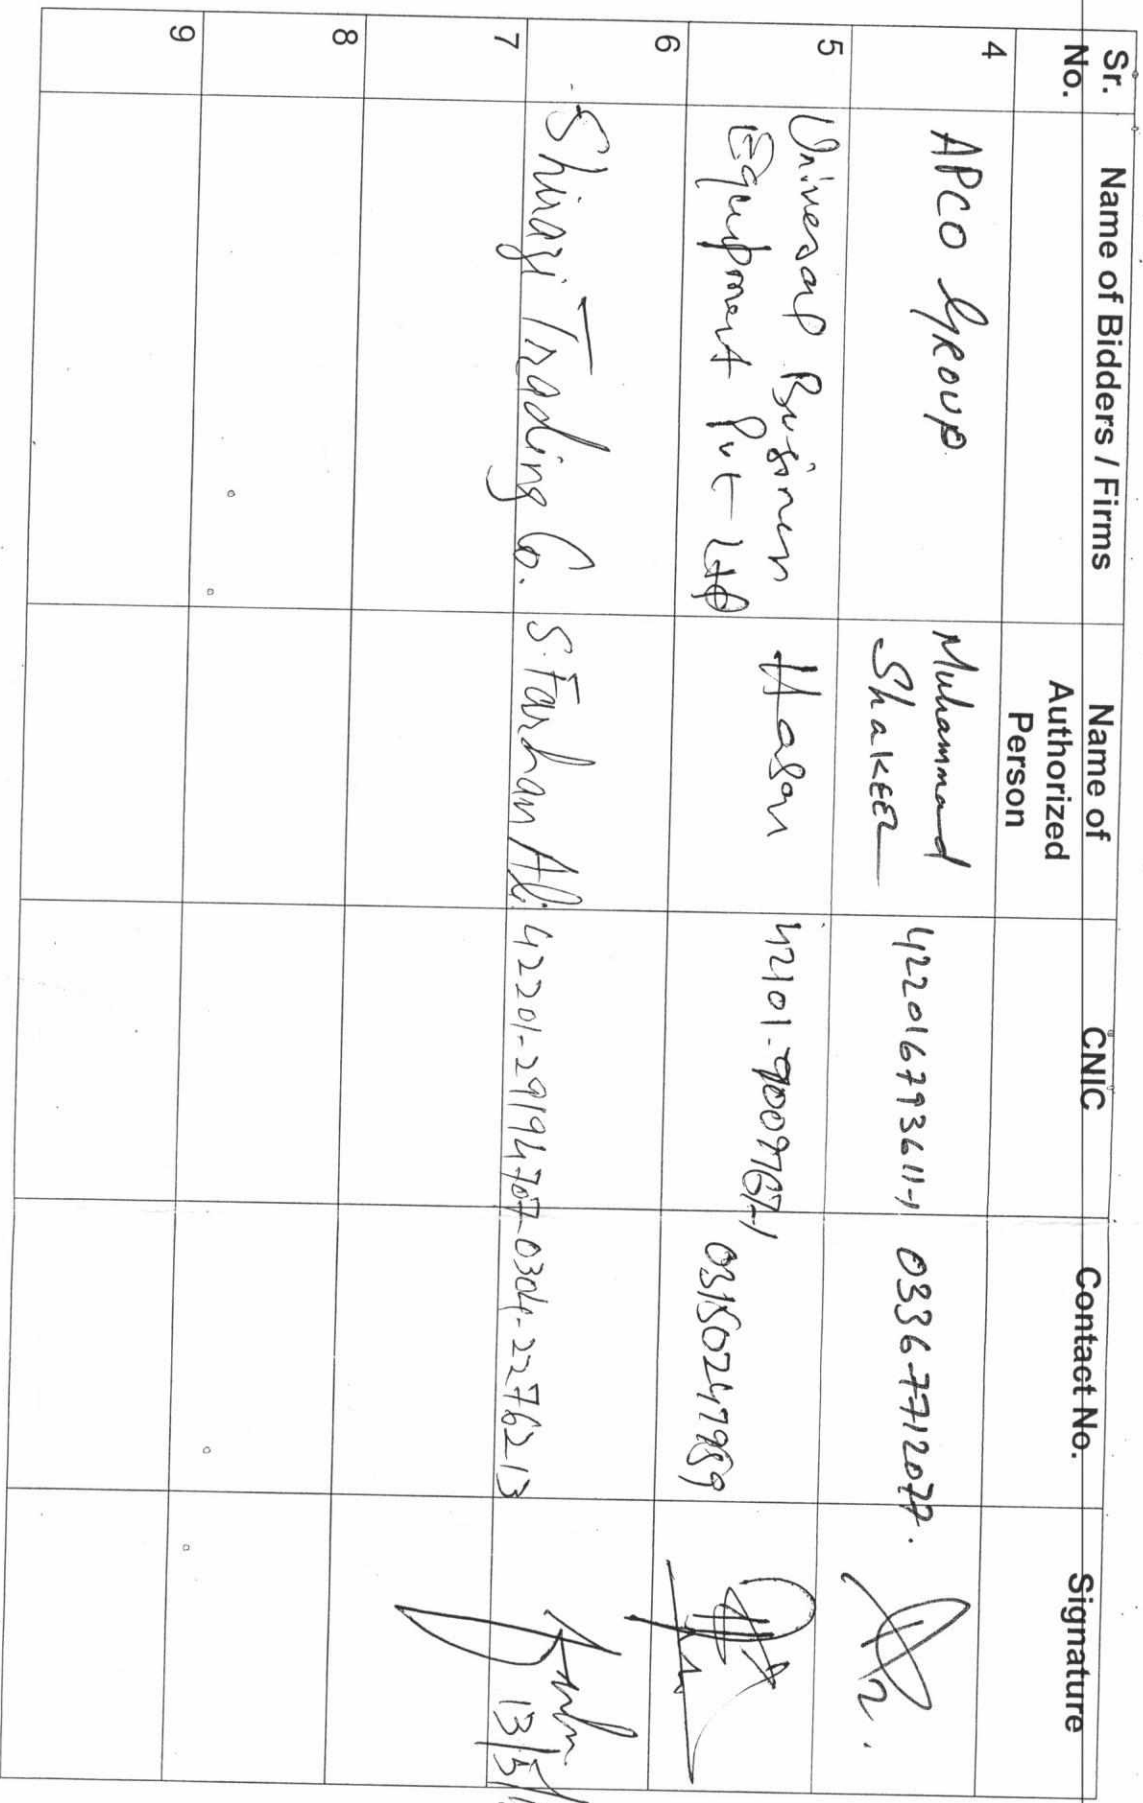 Sr. No. Name of Bidders / Firms Name of Authorized Person CNIC Contact No. Signature
4 APCO GROUP Muhammad Shakeel 42201679361-1 03367712077.
5 Universal Business Equipment Pvt-Ltd Hasan 42101-9009767-1 03150247989
6 Shirazi Trading Co. S. Farhan Ali 42201-2919470-7 0304-2276213
7
8
9